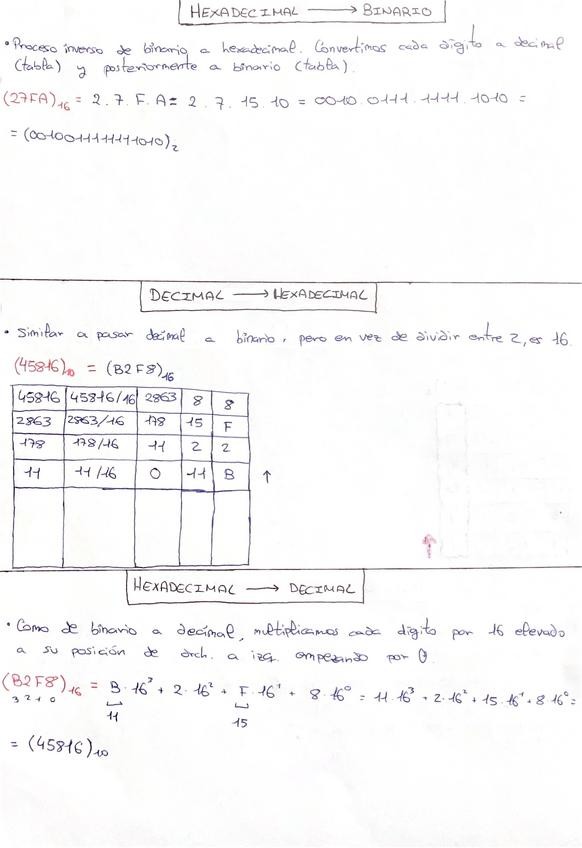 HEXADECIMAL → BINARIO
• Proceso inverso de binario a hexadecimal. Convertimos cada dígito a decimal
(tabla) y posteriormente a binario (tabla).
(27FA)₁₆ = 2 . 7 . F . A = 2 . 7 . 15 . 10 = 0010 . 0111 . 1111 . 1010 =
= (0010011111111010)₂
DECIMAL → HEXADECIMAL
• Similar a pasar decimal a binario, pero en vez de dividir entre 2, es 16.
(45816)₁₀ = (B2F8)₁₆
45816 45816/16 2863 8 8
2863 2863/16 178 15 F
178 178/16 11 2 2
11 11/16 0 11 B ↑
↑
HEXADECIMAL → DECIMAL
• Como de binario a decimal, multiplicamos cada dígito por 16 elevado
a su posición de drch. a izq. empezando por 0.
(B2F8)₁₆ = B·16³ + 2·16² + F·16¹ + 8·16⁰ = 11·16³ + 2·16² + 15·16¹ + 8·16⁰ =
3 2 1 0
11 15
= (45816)₁₀